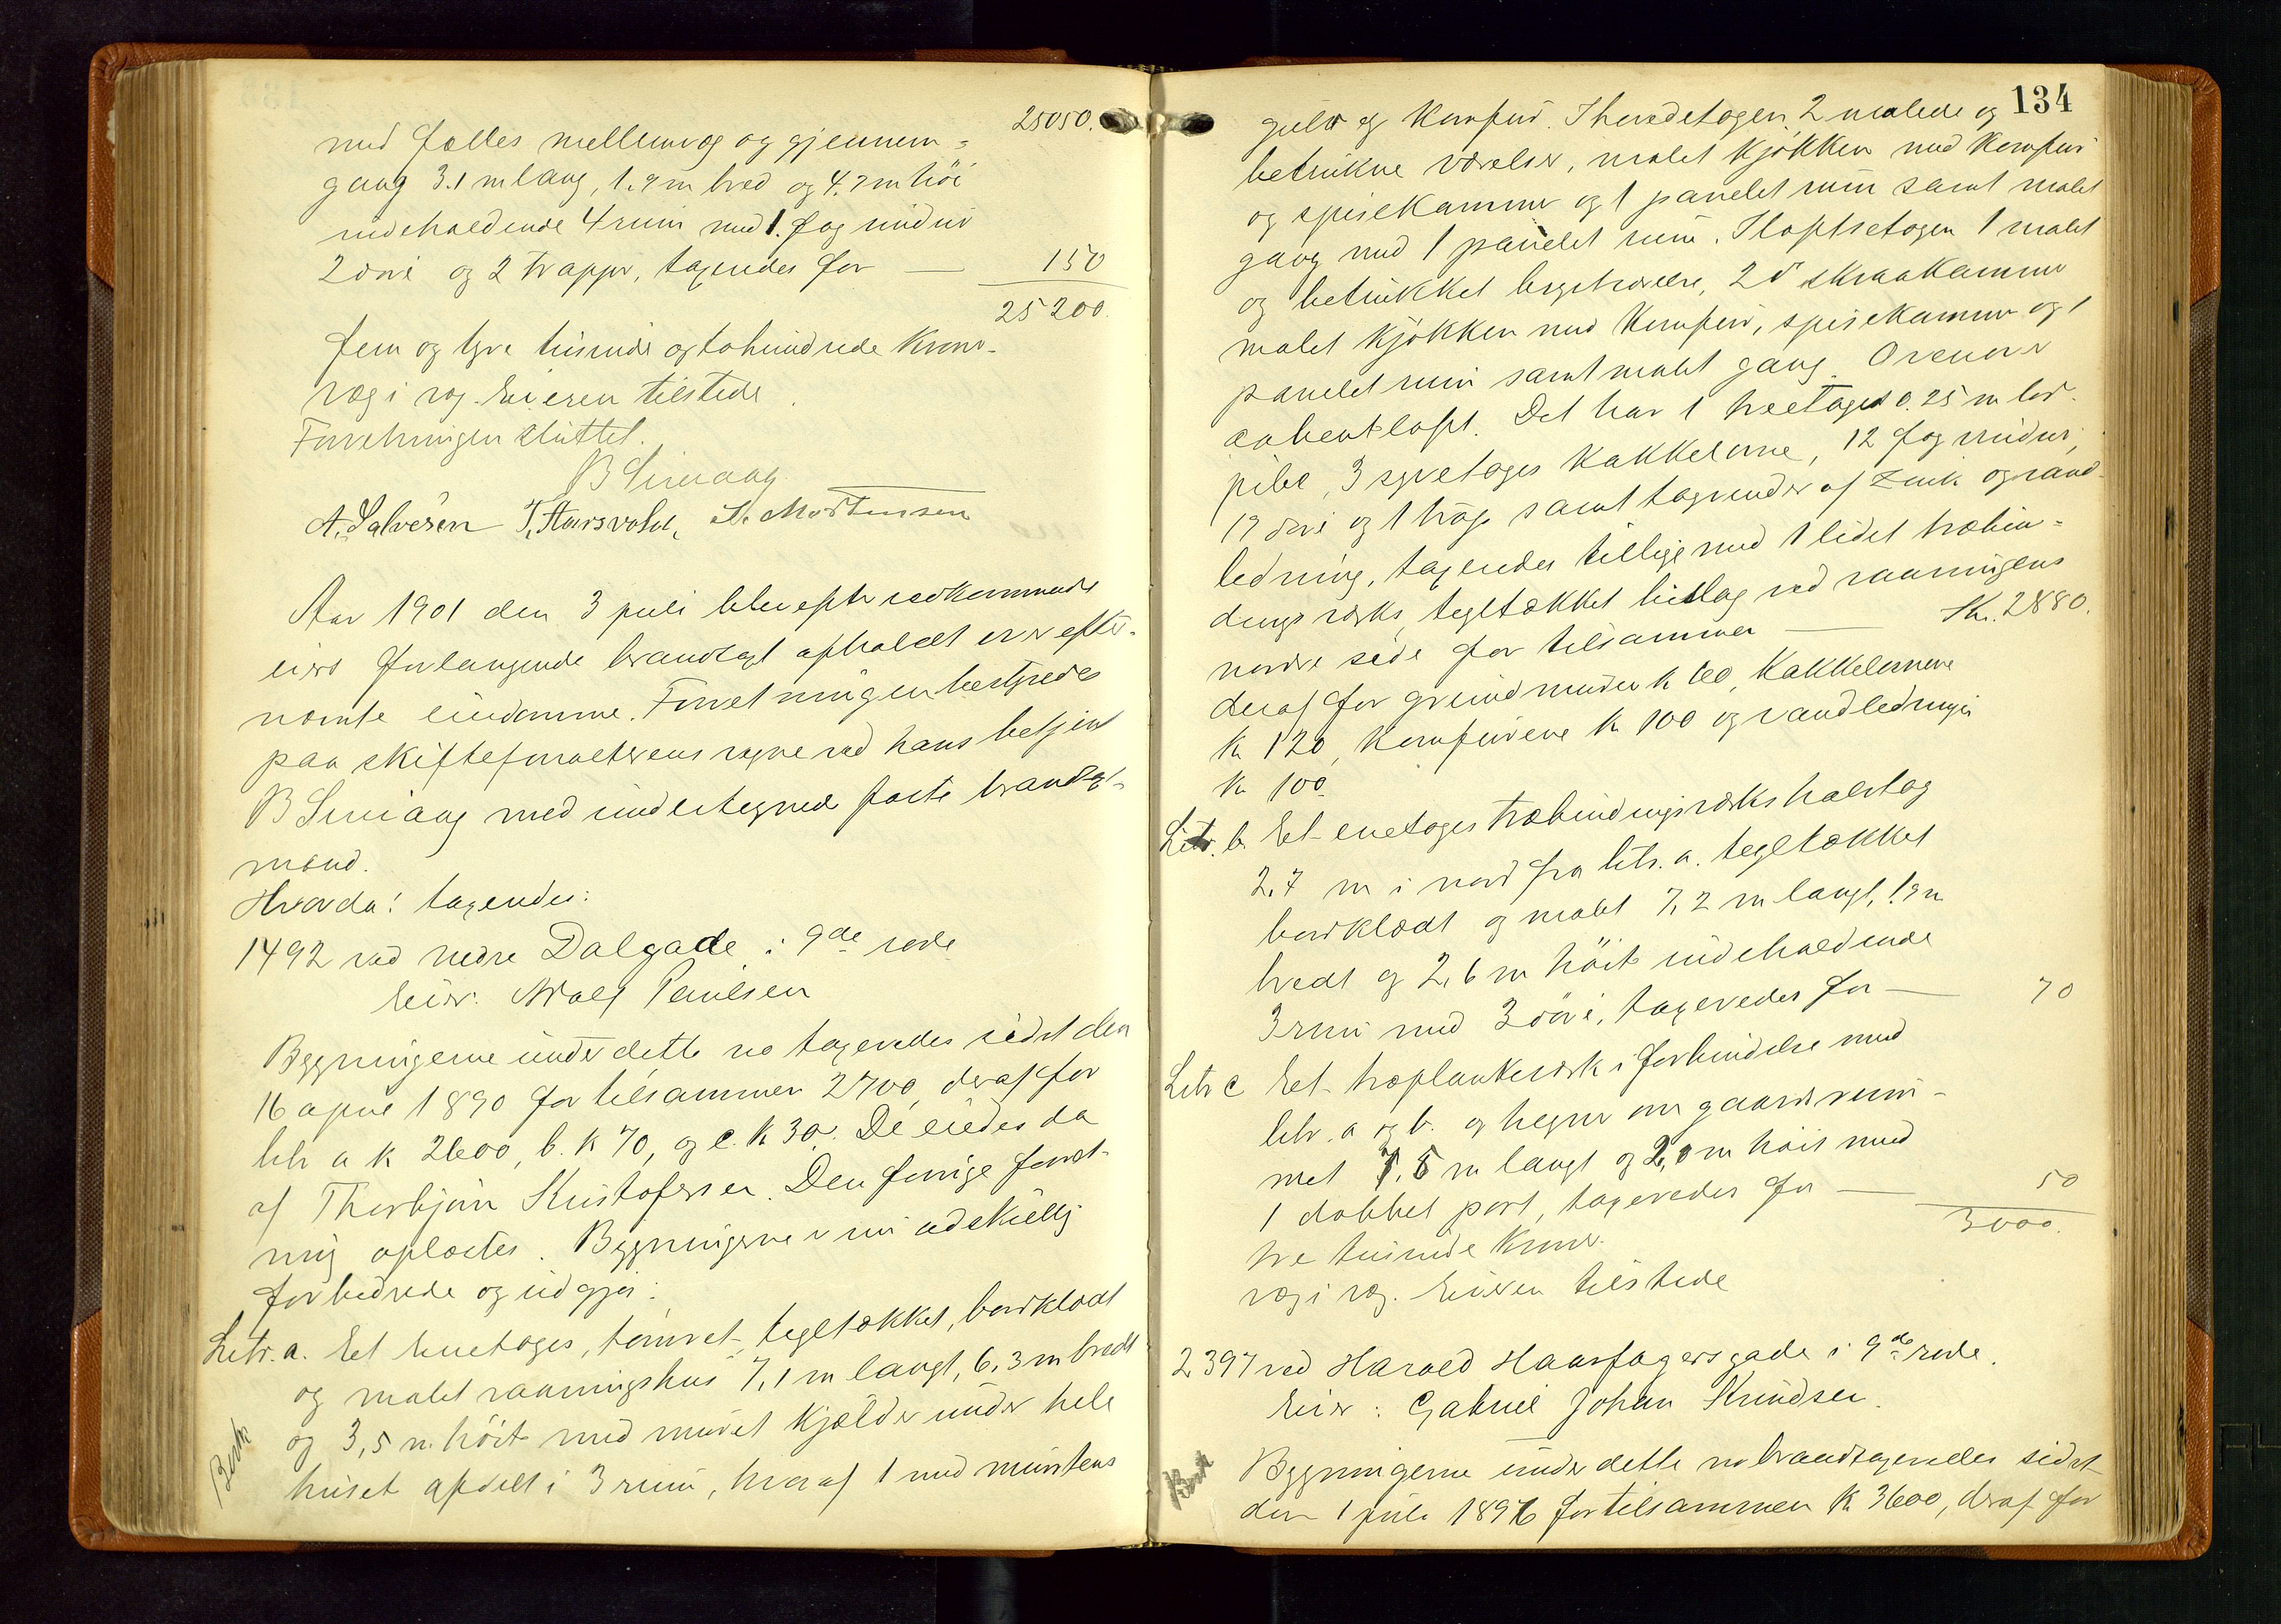 25050.
med fælles mellemvæg og gjennem=
gang 3.1 m lang, 1.9 m bred og 4.7 m höi
indeholdende 4 rum med 1. fag vinduer
2 döre og 2 trapper, taxeredes for — 150
25200.
fem og tyve tusinde og tohundrede kroner.
ræg i ræg. Eieren tilstede.
Forretningen sluttet.
A. Salvesen T. Aarsvold, A. Mortensen
Aar 1901 den 3 juli blev efter vedkommende
eiers forlangende brandtaxt afholdt over efter-
nævnte eiendomme. Forretningen bestyredes
paa skifteforvalterens vegne ved hans betjent
B med undertegnede faste brandtaxt-
mænd.
Hvorda: taxeredes:
1492 ved nedre Dalgade i 9de rode
Eier: Adolf Paulsen
Bygningerne under dette no taxeredes sidst den
16 april 1890 for tilsammen 2700, deraf for
litr a k 2600, b. k 70, og c. k 30. De eiedes da
af Thorbjörn Kristofersen. Den forrige forret-
ning oplæstes. Bygningerne er nu adskillig
forbedrede og udgjör:
Litr. a. Et enetages, tömret, tegltækket, bordklædt
og malet vaaningshus 7,1 m langt, 6,3 m bredt
og 3,5 m. höit med muret kjælder under hele
huset afdelt i 3 rum, hvoraf 1 med murstens
134
gulv og komfur. I hovedetagen 2 malede og
betrukne værelser, malet kjökken med komfur
og spisekammer og 1 panelet rum samt malet
gang med 1 panelet rum. I loftsetagen 1 malet
og betrukket kvistværelse, 2 do skraakammer
malet kjökken med komfur, spisekammer og 1
panelet rum samt malet gang. Ovenover
aabent loft. Det har 1 treetages 0.25 m lös.
pibe, 3 syvetages kakkelovne, 12 fag vinduer,
19 döre og 1 trap samt tagrender af zink og vand-
ledning, taxeredes tillige med 1 lidet træbin=
dings værks, tegltækket bislag ved vaaningens
nordre side for tilsammen — Kr. 2880.
deraf for grundmuren k 100, kakkelovnene
k 120, komfurene k 100 og vandledningen
k 100.
Litr. b. Et enetages træbindingsværks halvtag
2.7 m i nord fra litr. a. tegltækket
bordklædt og malet 7,2 m langt, 1.9 m
bredt og 2,6 m höit indeholdende
3 rum med 3 döre, taxeredes for — 70
Litr c Et træplankeværk i forbindelse med
litr. a og b. og hegner om gaardsrum-
met 7,5 m langt og 2,0 m höit med
1 dobbel port, taxeredes for — 50
3000.
tre tusinde kroner.
ræg i ræg. Eieren tilstede
2397 ved Harald Haarfagers gade i 9de rode.
Eier: Gabriel Johan Knudsen.
Bygningerne under dette no brandtaxeredes sidst
den 1 juli 1896 for tilsammen k. 3600, deraf for